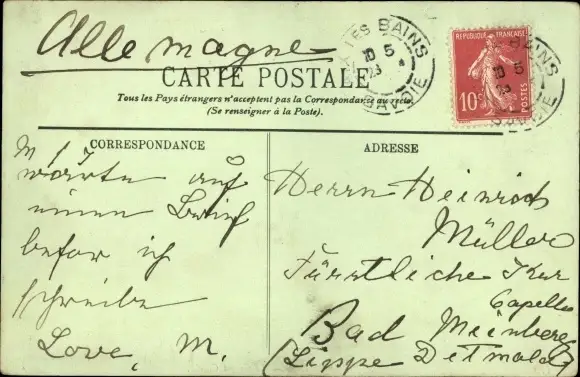 Allemagne
CARTE POSTALE
Tous les Pays étrangers n'acceptent pas la Correspondance au recto.
(Se renseigner à la Poste).
LES BAINS
SAVOIE
REPUBLIQUE FRANÇAISE
10c
POSTES
BAINS
SAVOIE
CORRESPONDANCE
warte auf
einen Brief
befor ich
schreibe
Love, M.
ADRESSE
Herrn Heinrich
Müller
Fürstliche Kur
Capelle
Bad Meinberg
(Lippe Detmold)